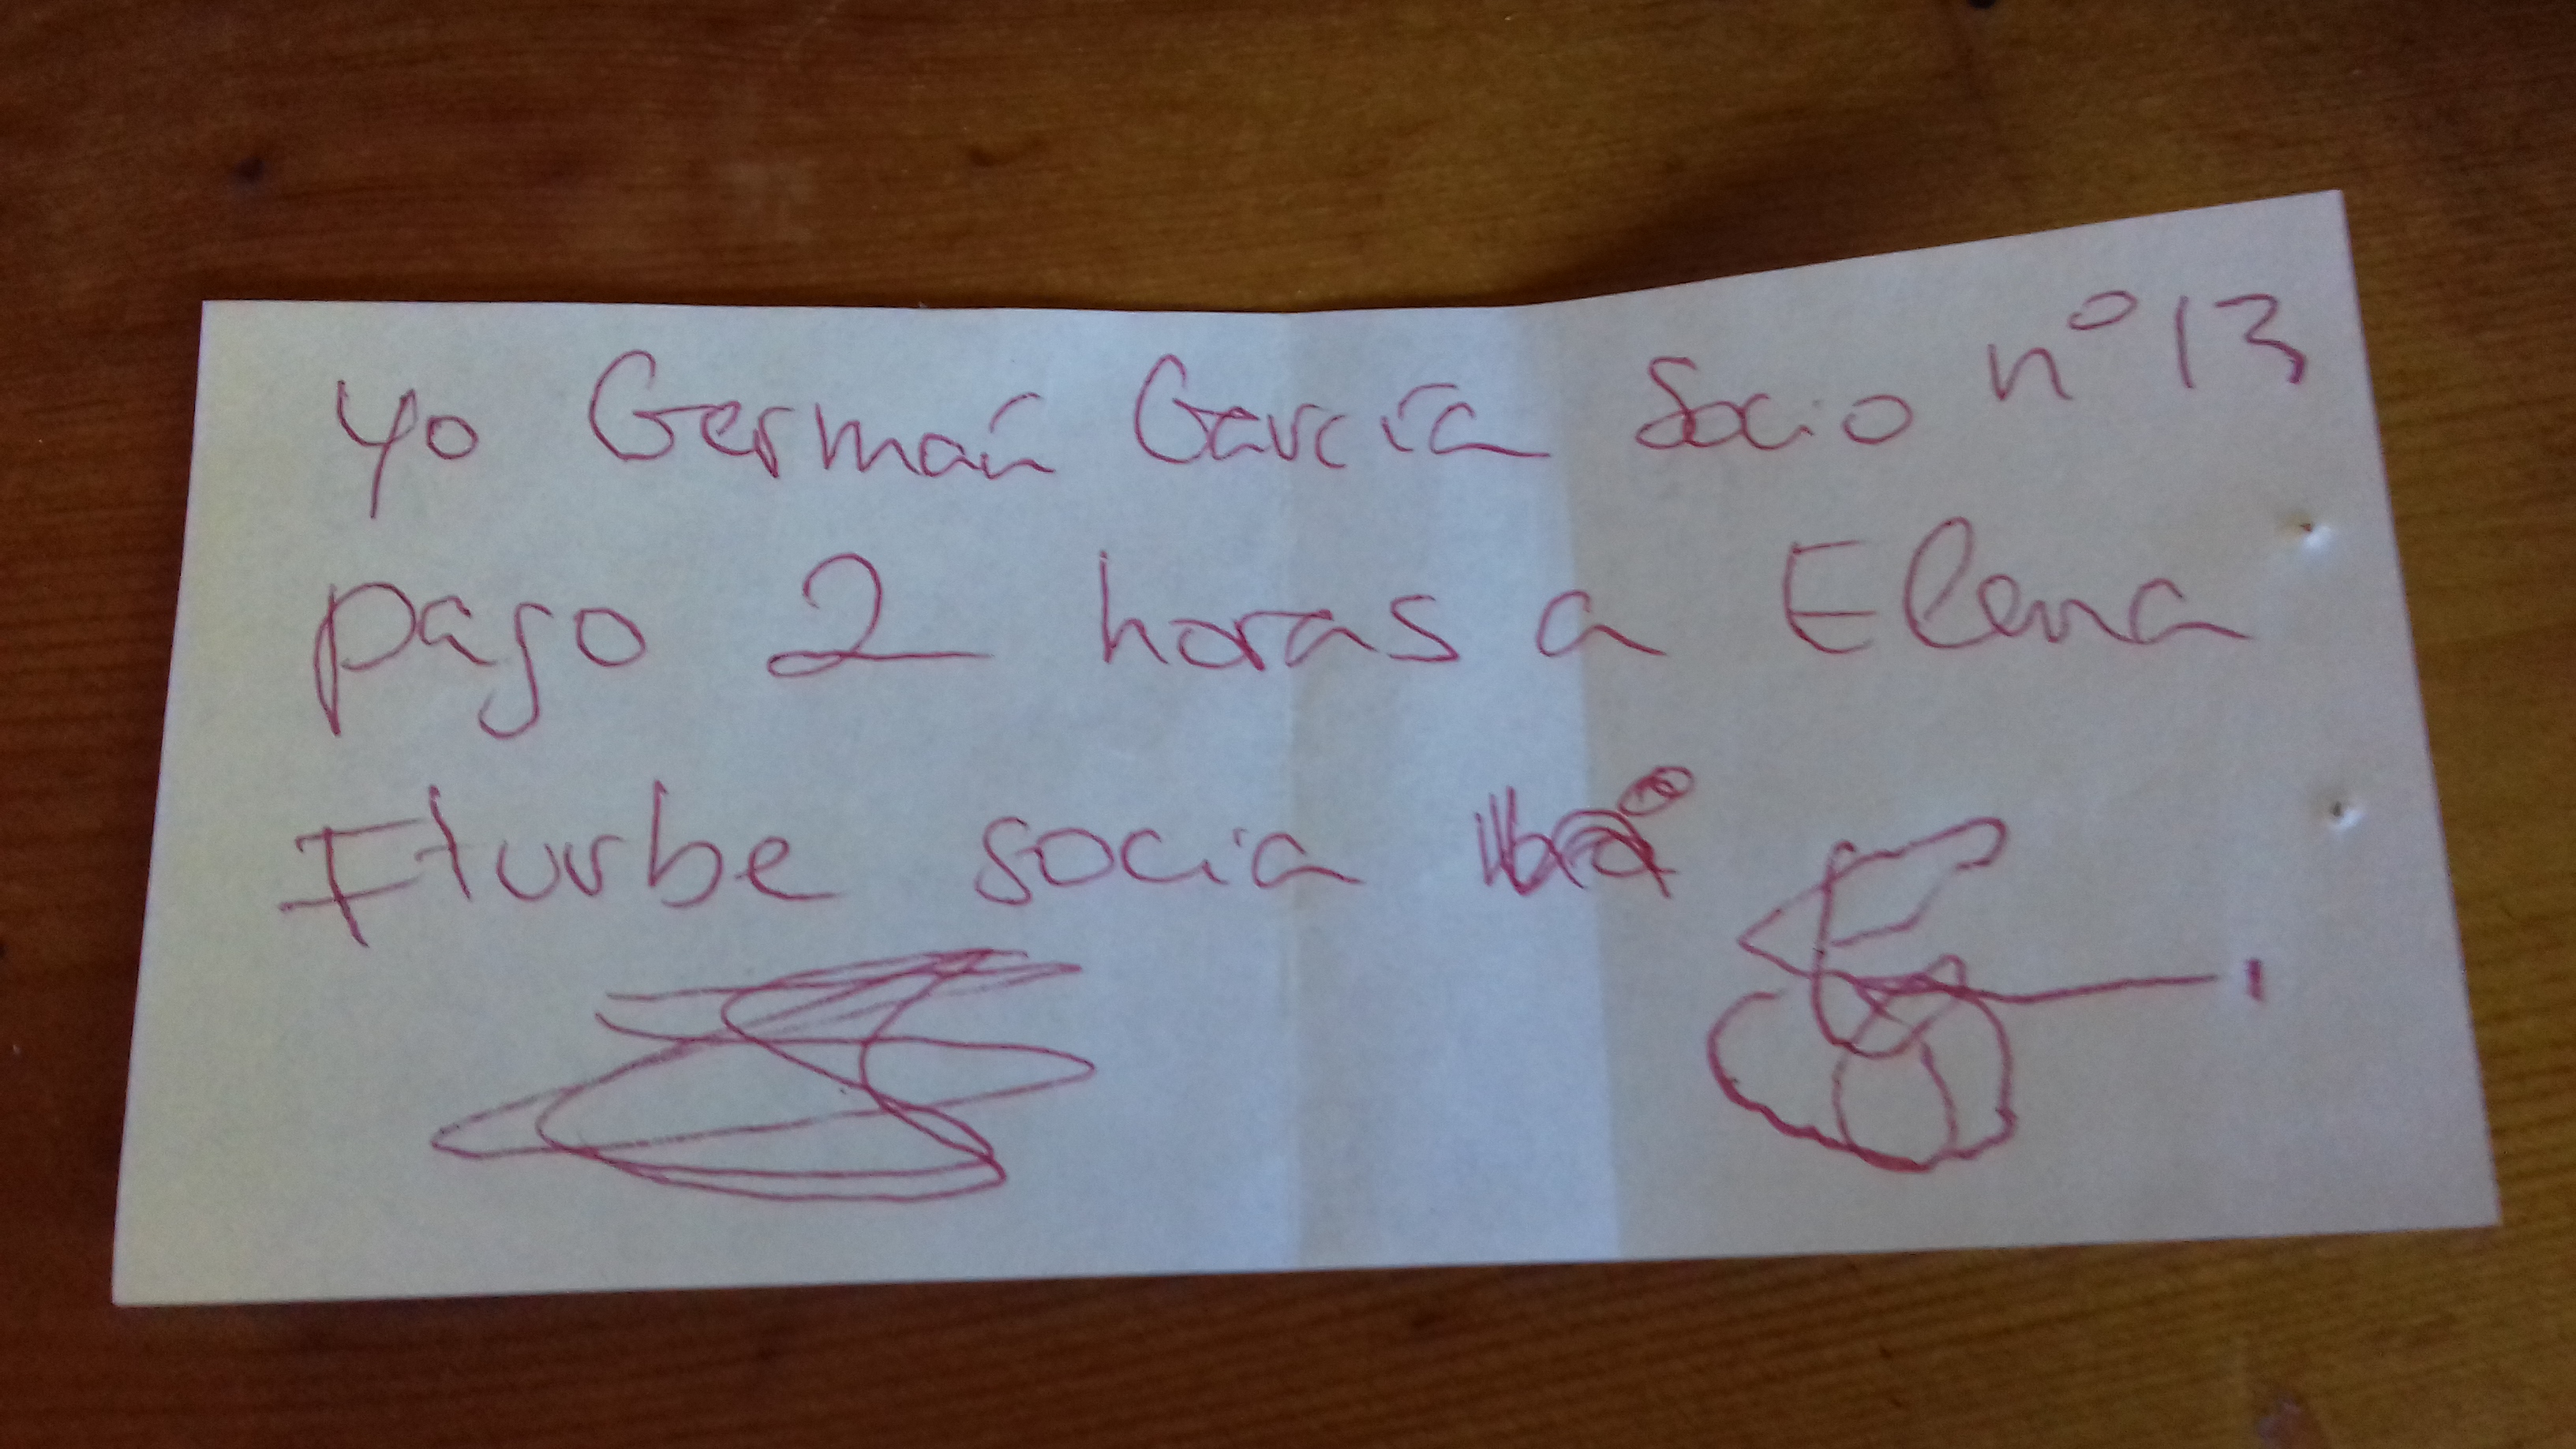 Yo Germán García Socio nº 13
pago 2 horas a Elena
Iturbe socia